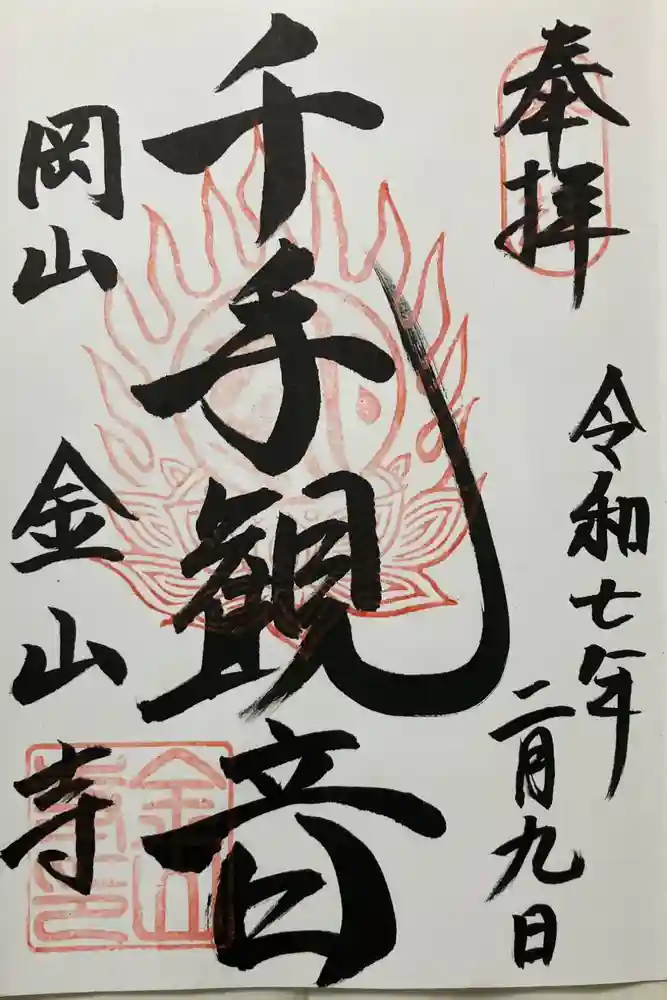 奉拝
令和七年
二月九日
千手観音
岡山
金山寺
金山寺印